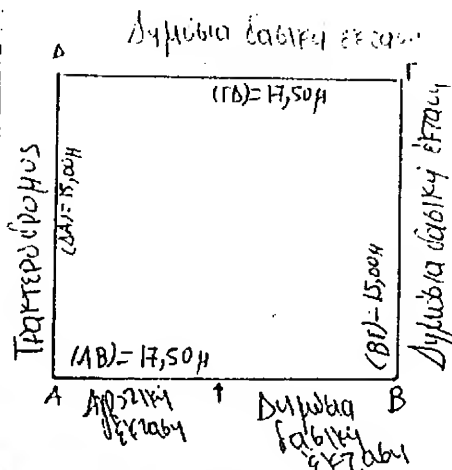 Δημόσια δασική έκταση
Δ
Γ
(ΓΔ)=17,50μ
Τρακτερόδρομος
(ΔΑ)=15,00μ
(ΒΓ)=15,00μ
Δημόσια δασική έκταση
(ΑΒ)=17,50μ
Α
Β
Αγροτική
έκταση
Δημόσια
δασική
έκταση